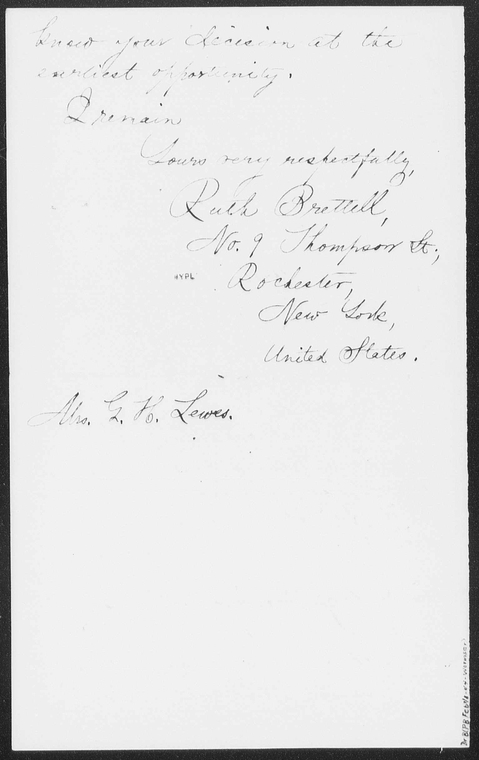 know your decision at the
earliest opportunity.
I remain
Yours very respectfully,
Ruth Brettell,
No. 9 Thompson St.,
NYPL
Rochester,
New York,
United States.
Mrs. G. H. Lewes.